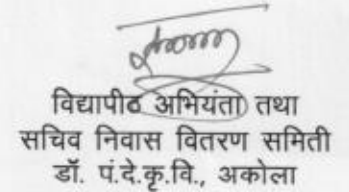 विद्यापीठ अभियंता तथा
सचिव निवास वितरण समिती
डॉ. पं.दे.कृ.वि., अकोला